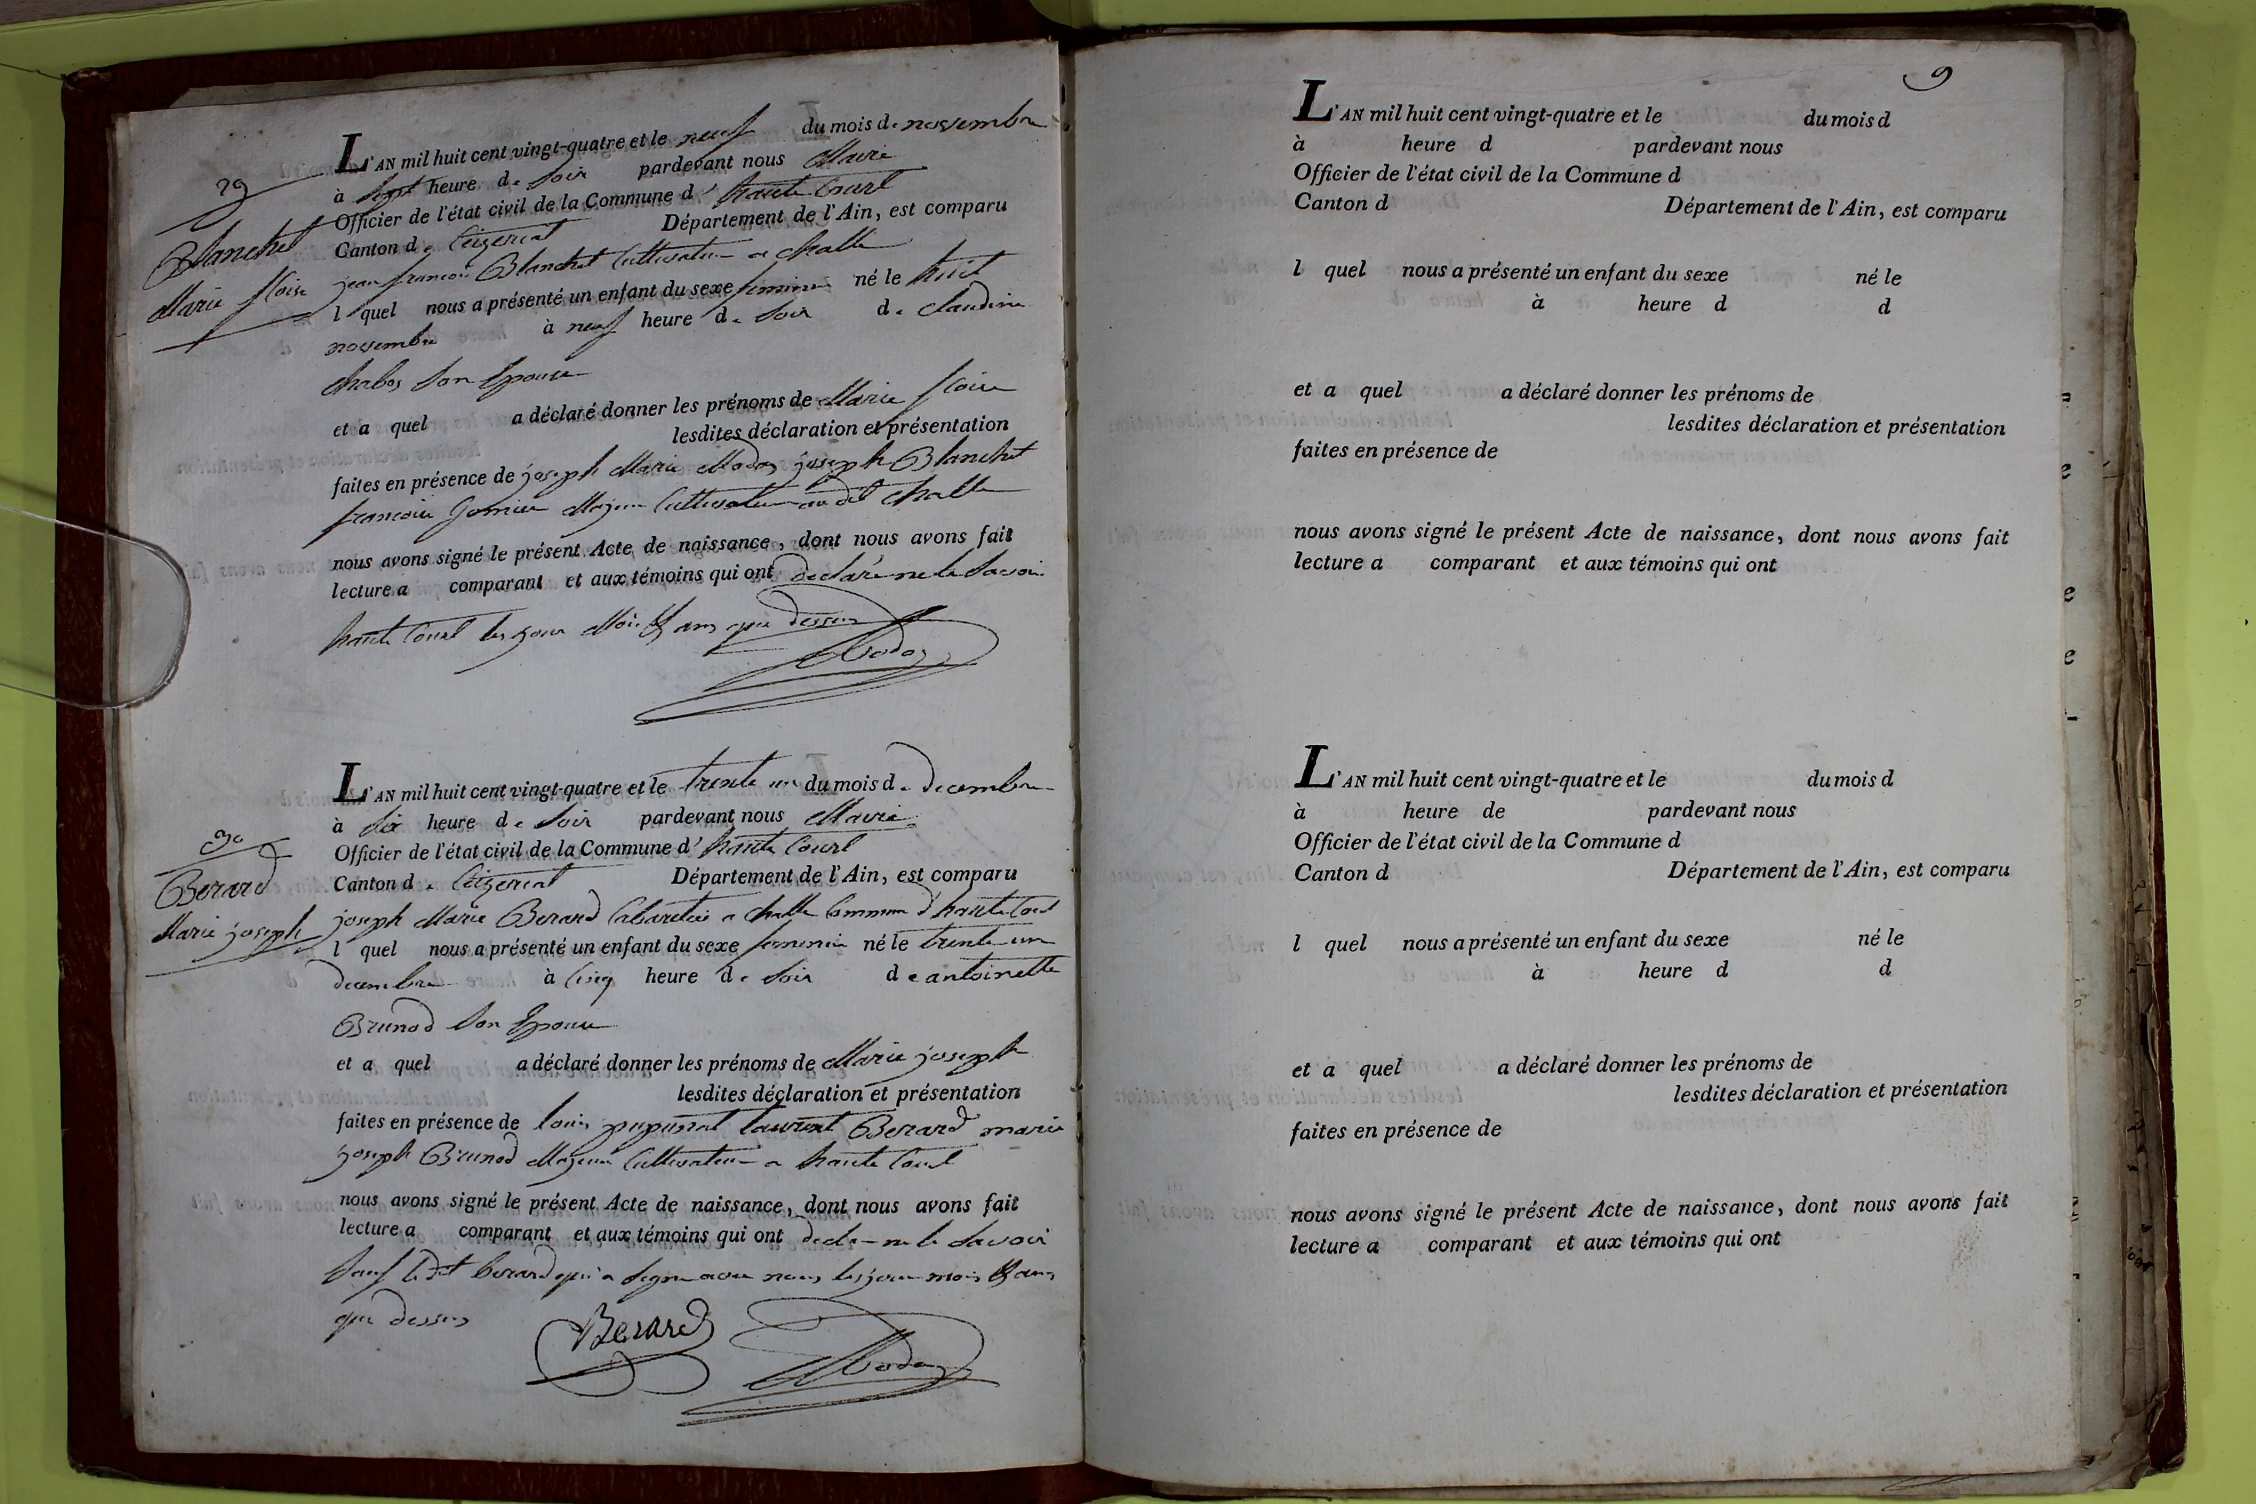 29
Blanchet
Marie floise
L'AN mil huit cent vingt-quatre et le neuf du mois de novembre
à Sept heure de Soir pardevant nous Maire
Officier de l'état civil de la Commune d'haute Court
Canton de Ceizeriat Département de l'Ain, est comparu
jean francois Blanchet Cultivateur a Challe
l quel nous a présenté un enfant du sexe feminin né le huit
novembre à neuf heure de Soir de Claudine
Chabos Son Epouse
et a quel a déclaré donner les prénoms de Marie
lesdites déclaration et présentation
faites en présence de joseph Marie Modas joseph Blanchet
francois Majeur Cultivateur au dit Challe
nous avons signé le présent Acte de naissance, dont nous avons fait
lecture a comparant et aux témoins qui ont declaré ne le Savoir
haute Court les jour Mois & ans que dessus
30
Berard
Marie joseph
L'AN mil huit cent vingt-quatre et le trente un du mois de decembre
à Six heure de Soir pardevant nous Maire
Officier de l'état civil de la Commune d'haute Court
Canton de Ceizeriat Département de l'Ain, est comparu
joseph Marie Berard Cabaretier a Challe Commune d'haute Court
l quel nous a présenté un enfant du sexe feminin né le trente un
decembre à Cinq heure de Soir de antoinette
Brunod Son Epouse
et a quel a déclaré donner les prénoms de Marie joseph
lesdites déclaration et présentation
faites en présence de louis pupunat laurent Berard marie
joseph Brunod Majeur Cultivateur a haute Court
nous avons signé le présent Acte de naissance, dont nous avons fait
lecture a comparant et aux témoins qui ont decla ne le Savoir
Sauf le dit berard qui a Signe avec nous les jour mois & ans
que dessus
Berard
9
L'AN mil huit cent vingt-quatre et le du mois d
à heure d pardevant nous
Officier de l'état civil de la Commune d
Canton d Département de l'Ain, est comparu
l quel nous a présenté un enfant du sexe né le
à heure d d
et a quel a déclaré donner les prénoms de
lesdites déclaration et présentation
faites en présence de
nous avons signé le présent Acte de naissance, dont nous avons fait
lecture a comparant et aux témoins qui ont
L'AN mil huit cent vingt-quatre et le du mois d
à heure de pardevant nous
Officier de l'état civil de la Commune d
Canton d Département de l'Ain, est comparu
l quel nous a présenté un enfant du sexe né le
à heure d d
et a quel a déclaré donner les prénoms de
lesdites déclaration et présentation
faites en présence de
nous avons signé le présent Acte de naissance, dont nous avons fait
lecture a comparant et aux témoins qui ont